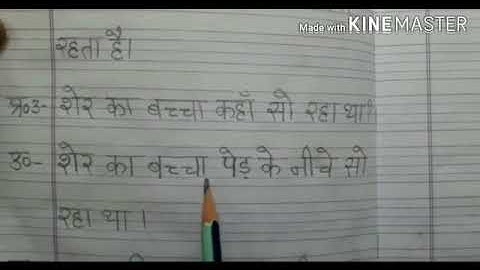 Made with KINEMASTER
रहता है।
प्र०३- शेर का बच्चा कहाँ सो रहा था?
उ०- शेर का बच्चा पेड़ के नीचे सो
रहा था ।